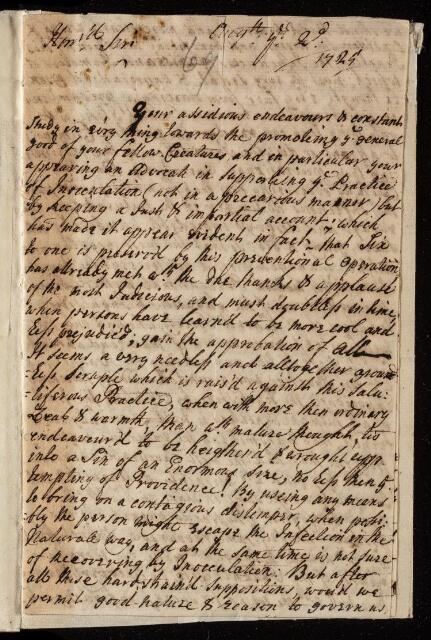 Hon.ᵈ Sir August yᵉ 2ᵈ
1725
Your assidious endeavours & constant
Study in every thing towards the promoteing yᵉ general
good of your fellow Creatures and in particular your
appearing an Advocate in supporting yᵉ Practice
of Inoculation (not in a precarious manner) but
by keeping a Just & impartial account, which
has made it appear evident in fact, that Six
to one is preserv'd by this preventional Operation,
has already met wᵗʰ the due thanks & applause
of the most Judicious, and must doubtless in time
when persons have learn'd to be more cool and
less prejudic'd, gain the approbation of all
It seems a very needless and alltogether ground-
less Scruple which is rais'd against this Salu-
tiferous Practice, when with more then ordinary
Zeal & warmth, than wᵗʰ mature thought, tis
endeavour'd to be heighten'd & wrought upp
into a Sin of an Enormous Size, no less then yᵉ
tempting of Providence! By useing any means
to bring on a contagious distemper, when possi-
bly the person might escape the Infection in the
Naturale way, and at the same time is not sure
of recovering by Inoculation: But after
all these hardstrain'd Suppositions, would we
permit good-nature & reason to govern us